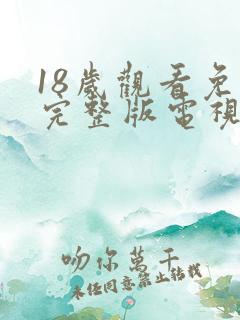 18歲觀看免
完整版電視
吻你萬千
未经同意禁止转载